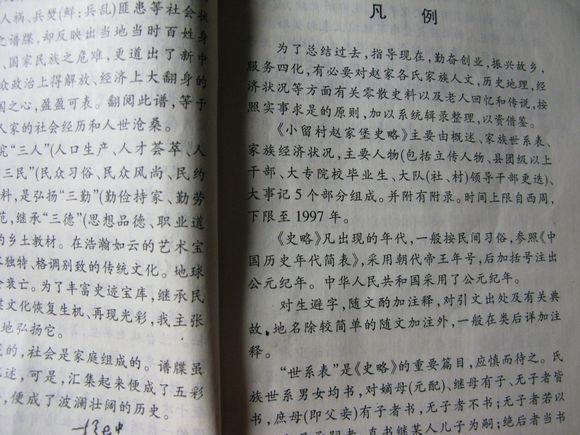 人祸、兵燹(鲜:兵乱)匪患等社会状
之谱牒,却反映出当地当时百姓身
、国家民族之危难,更道出了新中
众政治上得解放、经济上大翻身的
国之心,盈盈可表。翻阅此谱,等于
人家的社会经历和人世沧桑。
究“三人”(人口生产、人才荟萃、人
“三民”(民众习俗、民众风尚、民约
料,是弘扬“三勤”(勤俭持家、勤劳
范,继承“三德”(思想品德、职业道
的乡土教材。在浩瀚如云的艺术宝
本独特、格调别致的传统文化。地球
会衰亡。为了丰富史迹宝库,继承民
谍文化恢复生机、再现光彩,我主张
地弘扬它。
成的,社会是家庭组成的。谱牒虽
述,可是,汇集起来便成了五彩
,便成了波澜壮阔的历史。
凡例
为了总结过去,指导现在,勤奋创业,振兴故乡,
服务四化,有必要对赵家各氏家族人文,历史地理,经
济状况等方面有关零散史料以及老人回忆和传说,按
照实事求是的原则,加以系统辑录整理,以资借鉴。
《小留村赵家堡史略》主要由概述、家族世系表、
家族经济状况,主要人物(包括立传人物、县团级以上
干部、大专院校毕业生、大队(社、村)领导干部更迭)、
大事记5个部分组成。并附有附录。时间上限自西周,
下限至1997年。
《史略》凡出现的年代,一般按民间习俗,参照《中
国历史年代简表》,采用朝代帝王年号,后加括号注出
公元纪年。中华人民共和国采用了公元纪年。
对生避字,随文酌加注释,对引文出处及有关典
故、地名除较简单的随文加注外,一般在类后详加注
释。
“世系表”是《史略》的重要篇目,应慎而待之。氏
族世系男女均书,对嫡母(元配)、继母有子、无子者皆
书,庶母(即父妾)有子者书,无子者不书;无子者若以
真书继某人儿子为嗣;绝后者当书